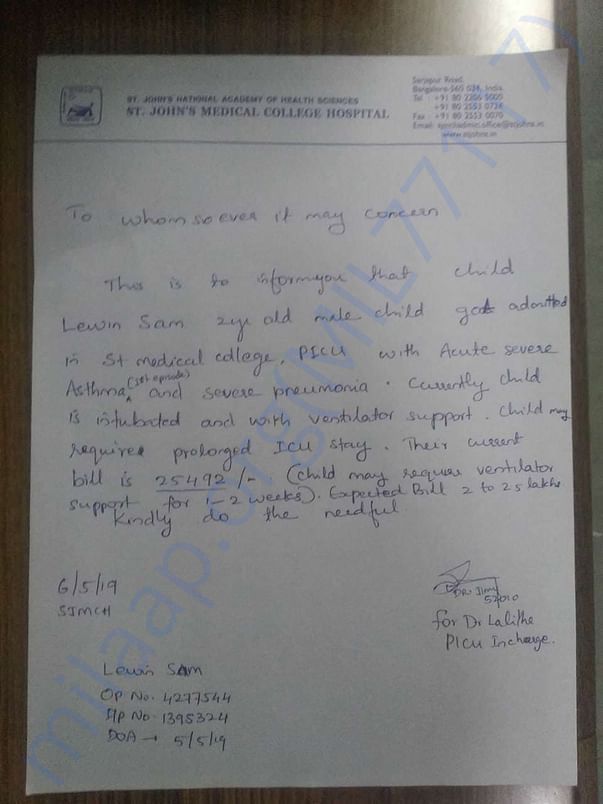 ST. JOHN'S NATIONAL ACADEMY OF HEALTH SCIENCES
ST. JOHN'S MEDICAL COLLEGE HOSPITAL
Sarjapur Road,
Bangalore-560 034, India
Tel : +91 80 2206 5000
+91 80 2553 0724
Fax : +91 80 2553 0070
www.stjohns.in
To whomsoever it may concern
This is to inform you that child
Lewin Sam 2yr old male child got admitted
in St medical college, PICU with Acute severe
Asthma (1st episode) and severe pneumonia. Currently child
is intubated and with ventilator support. Child may
require prolonged ICU stay. Their current
bill is 25492/- (child may require ventilator
support for 1-2 weeks). Expected Bill 2 to 2.5 lakhs
Kindly do the needful.
6/5/19
SJMCH
DR. Jimi
52010
for Dr Lalitha
PICU Incharge.
Lewin SAM
OP No. 4277544
IP No. 1395324
DOA → 5/5/19
milaap.org(MIL77117)